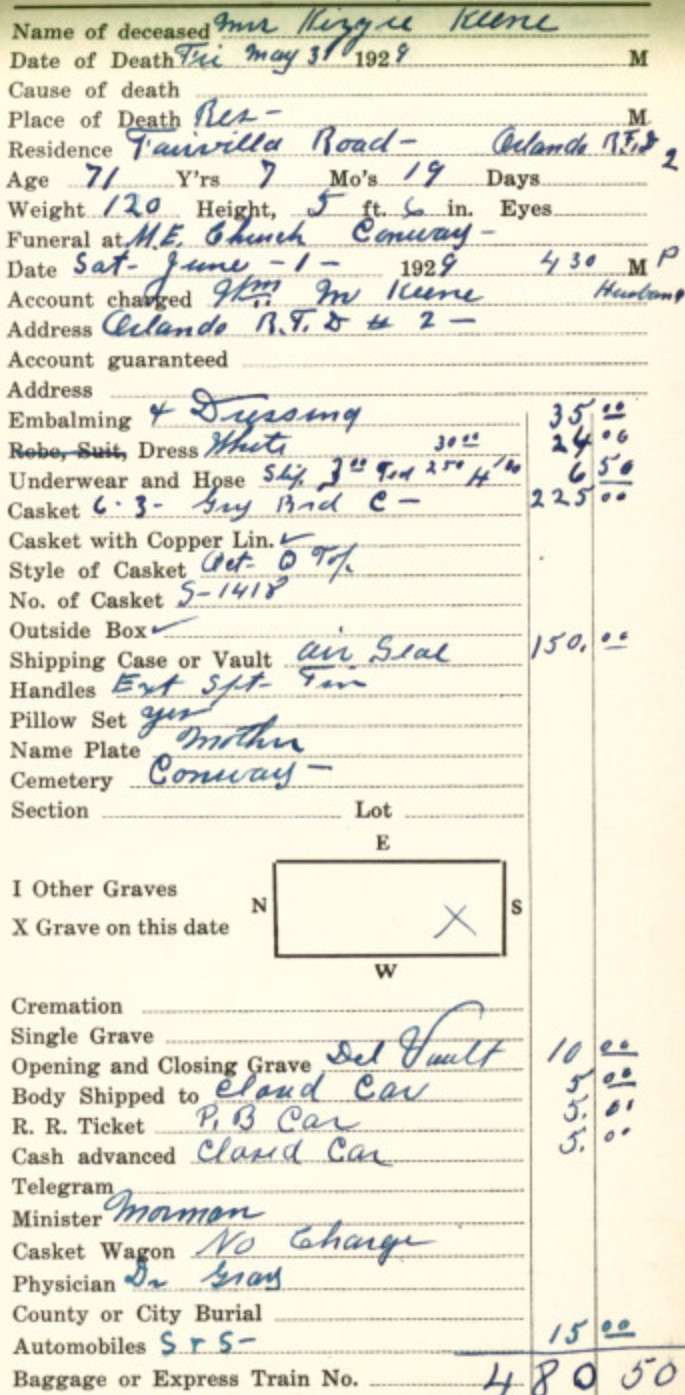 Name of deceased Mrs Kizzie Keene
Date of Death Fri May 31 1929 M
Cause of death
Place of Death Res - M
Residence Fairvilla Road - Orlando R.F.D 2
Age 71 Y'rs 7 Mo's 19 Days
Weight 120 Height, 5 ft. 6 in. Eyes
Funeral at M.E. Church Conway -
Date Sat - June - 1 - 1929 4 30 M P
Account charged Wm M Keene Husband
Address Orlando R.F.D # 2 -
Account guaranteed
Address
Embalming & Dressing 35 00
Robe, Suit, Dress White 30 00 24 00
Underwear and Hose Slip 3 00 2 50 H 1 00 6 50
Casket 6 - 3 - Gry Brd C - 225 00
Casket with Copper Lin. ✓
Style of Casket Oct - O Top
No. of Casket S-1418
Outside Box ✓
Shipping Case or Vault Air Seal 150. 00
Handles Ext
Pillow Set yes
Name Plate Mother
Cemetery Conway -
Section Lot
E
I Other Graves
N S
X Grave on this date
X
W
Cremation
Single Grave
Opening and Closing Grave Del Vault 10 00
Body Shipped to Closed Car 5 00
R. R. Ticket P. B Car 5. 00
Cash advanced Closed Car 5. 00
Telegram
Minister Mormon
Casket Wagon No Charge
Physician Dr Gray
County or City Burial
Automobiles S & S - 15 00
Baggage or Express Train No. 480 50